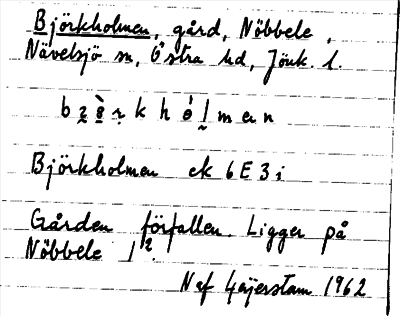 Björkholmen, gård, Nöbbele,
Nävelsjö sn, Östra hd, Jönk. l.
Björkholmen ek 6E3i
Gården förfallen. Ligger på
Nöbbele 1².
Naf Gäijerstam 1962